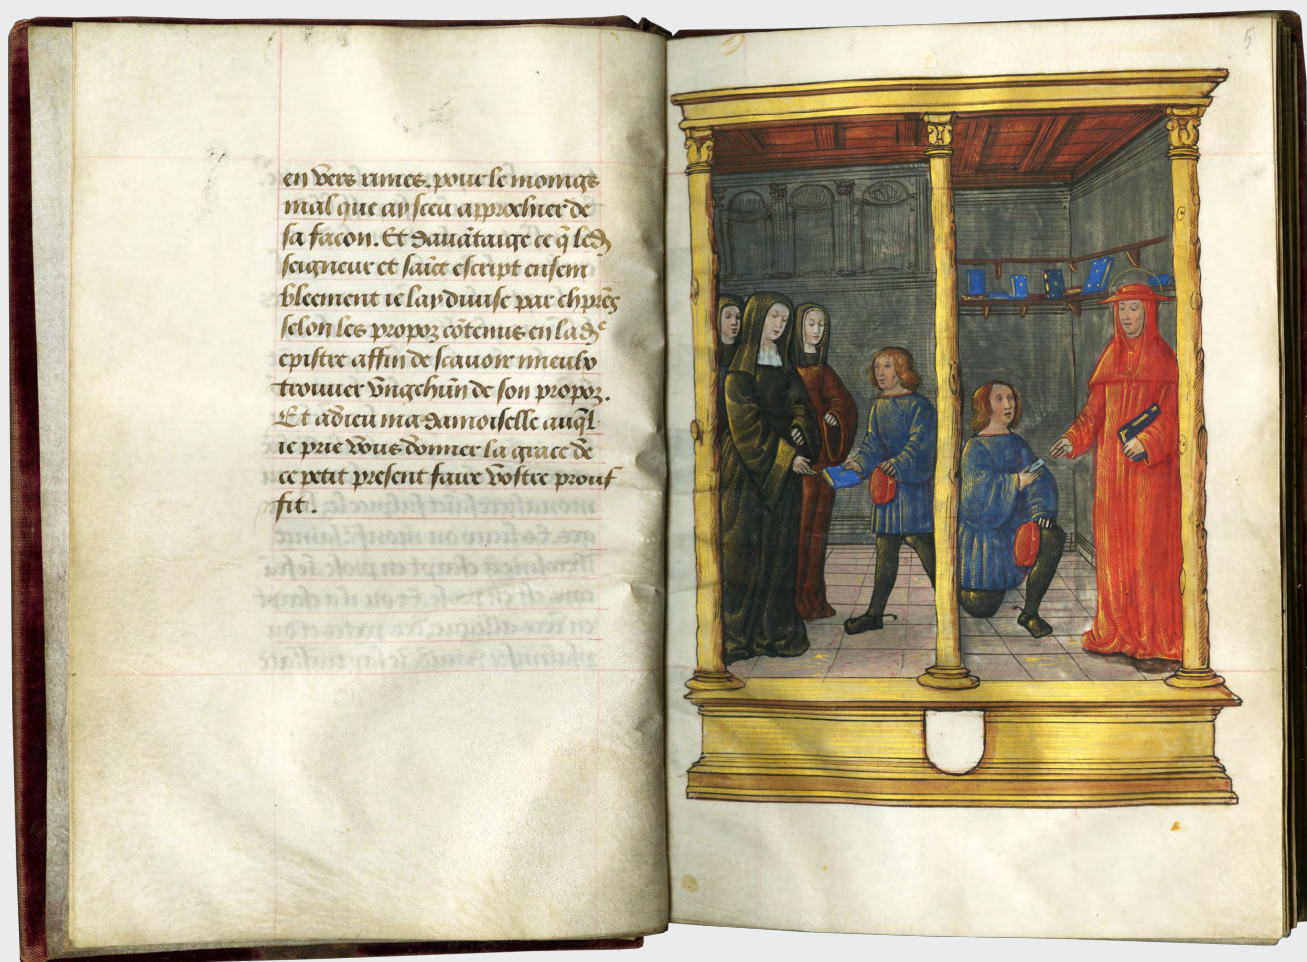 en vers rimes. pour le moings
mal que ay sceu approchier de
sa facon. Et davātaige ce q̄ led
seigneur et saīct escript ensem
bleement ie lay diuise par chp̄r̄es
selon les propoz cōtenus en lad.e
epistre affin de scavoir mieulx
trouver vngchūn de son propoz.
Et adieu ma damoiselle auq̄l
ie prie vous donner la grace de
ce petit present faire vostre prouf
fit.
5